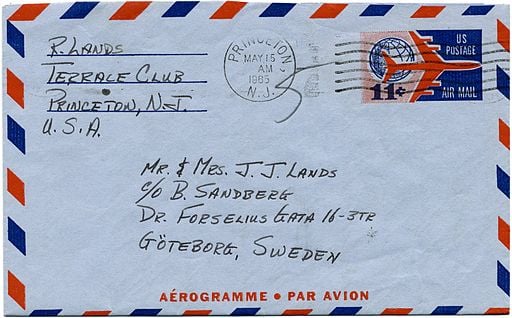 R. LANDS
TERRACE CLUB
PRINCETON, N.J.
U.S.A.
PRINCETON,
MAY 15
AM
1965
N.J.
US
POSTAGE
11¢
AIR MAIL
MR. & MRS. J. J. LANDS
C/O B. SANDBERG
DR. FORSELIUS GATA 16-3TR
GÖTEBORG, SWEDEN
AÉROGRAMME • PAR AVION